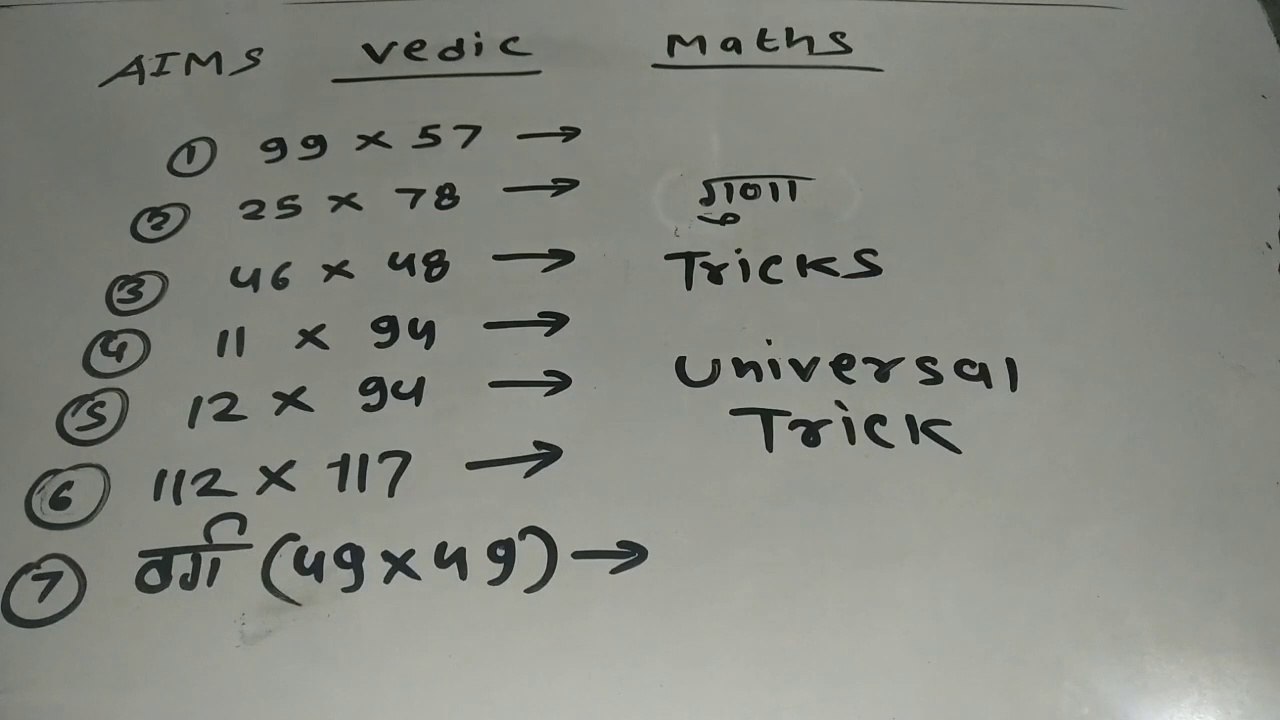 AIMS Vedic Maths
① 99 × 57 →
② 25 × 78 →
गुणा
③ 46 × 48 →
Tricks
④ 11 × 94 →
⑤ 12 × 94 →
Universal
Trick
⑥ 112 × 117 →
⑦ वर्ग (49×49) →